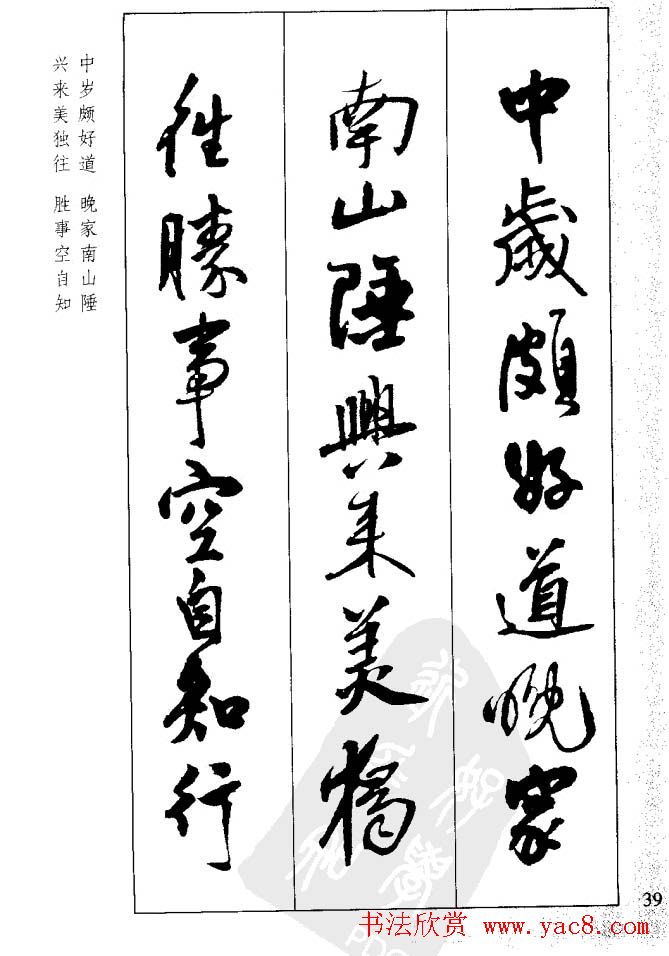 中歲頗好道晚家
南山陲興来美獨
往勝事空自知行
中岁颇好道 晚家南山陲
兴来美独往 胜事空自知
39
书法欣赏 www.yac8.com